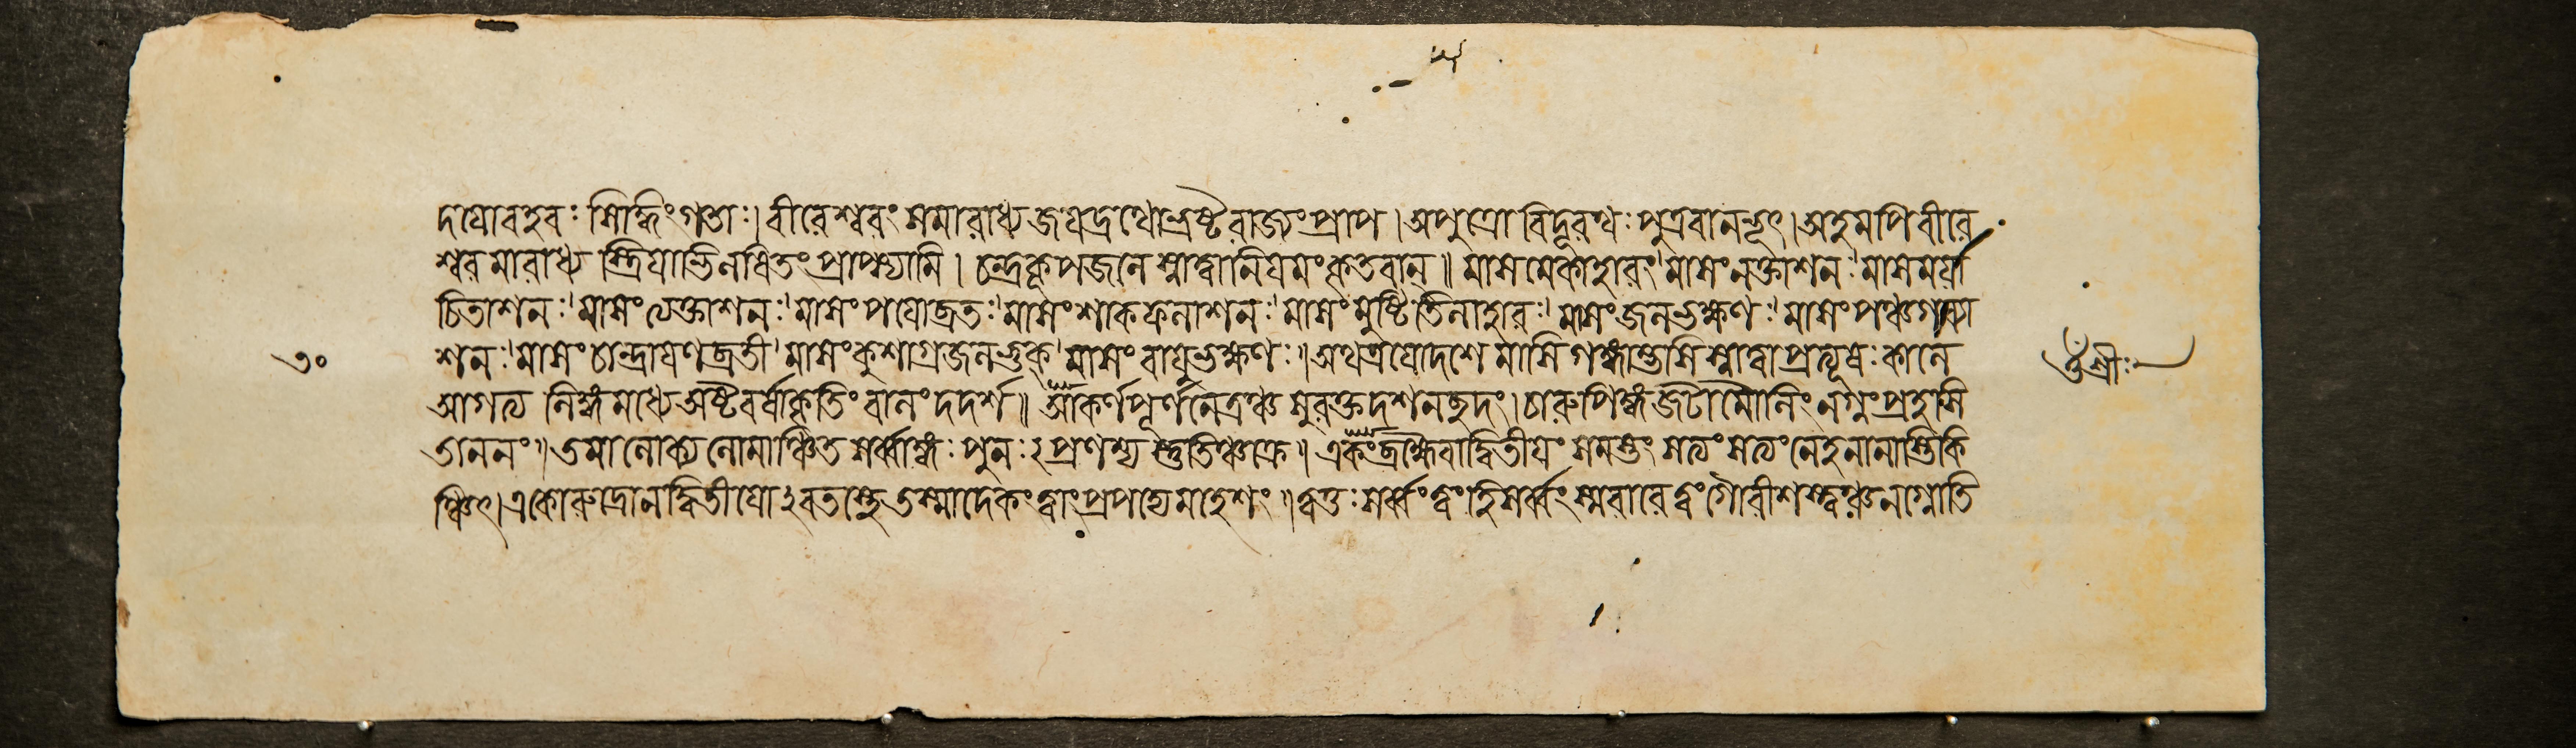 দয়োবহবঃ সিদ্ধিংগতাঃ। বীরেশ্বরং সমারাধ্য জয়দ্রথোভ্রষ্টরাজ্যং প্রাপ। অপুত্রো বিদূরথঃ পুত্রবানভূৎ। অহমপি বীরে
শ্বরমারাধ্য স্ত্রিয়োভিলষিতং প্রাপ্স্যামি। চন্দ্রকূপজলে স্নাত্বানিয়মং কৃতবান্॥ মাসমেকাহারঃ। মাসংনক্তাশনঃ। মাসমযা
চিতাশনঃ। মাসং ত্যক্তাশনঃ। মাসং পয়োব্রতঃ। মাসং শাকফলাশনঃ। মাসং মুষ্টিতিলাহারঃ। মাসং জলভক্ষণঃ। মাসং পঞ্চগব্যা
৩০ শনঃ। মাসং চান্দ্রায়ণব্রতী। মাসং কুশাগ্রজলভুক্। মাসং বায়ুভক্ষণঃ॥ অথত্রয়োদশে মাসি গঙ্গাম্ভসি স্নাত্বা প্রত্যূষেঃ কালে ওঁশ্রীঃ
আগত্য লিঙ্গমধ্যে অষ্টবর্ষাকৃতিং বালং দদর্শ॥ আকর্ণপূর্ণনেত্রঞ্চ সুরক্তদশনচ্ছদং। চারুপিঙ্গজটামৌলিং নগ্নং প্রহসি
তাননং॥ তমালোক্য লোমাঞ্চিতসর্ব্বাঙ্গঃ পুনঃ২ প্রণম্য স্তুতিঞ্চক্রে॥ একংব্রহ্মৈবাদ্বিতীয়ং সমস্তং সত্যং সত্যং নেহনানাস্তিকি
ঞ্চিৎ। একোরুদ্রোনদ্বিতীয়োঽবতস্থে তস্মাদেকং ত্বাং প্রপদ্যে মহেশং॥ ত্বত্তঃ সর্ব্বং ত্বং হি সর্ব্বং স্মরারে ত্বং গৌরীশস্ত্বঞ্চনগ্নোতি